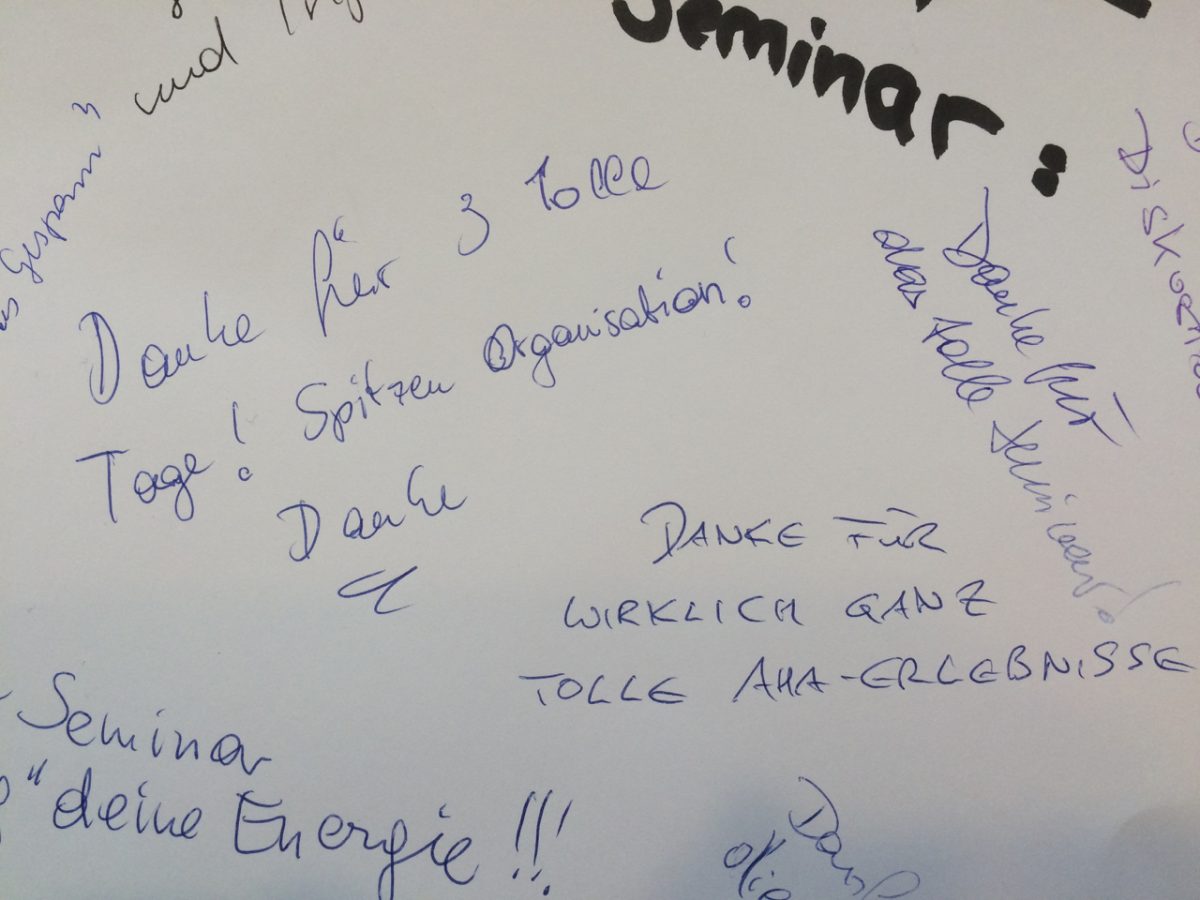 und
Seminar:
Danke für 3 tolle
Tage! Spitzen Organisation!
Danke
Danke für
das tolle Seminar!
DANKE FÜR
WIRKLICH GANZ
TOLLE AHA-ERLEBNISSE
Seminar
deine Energie !!!